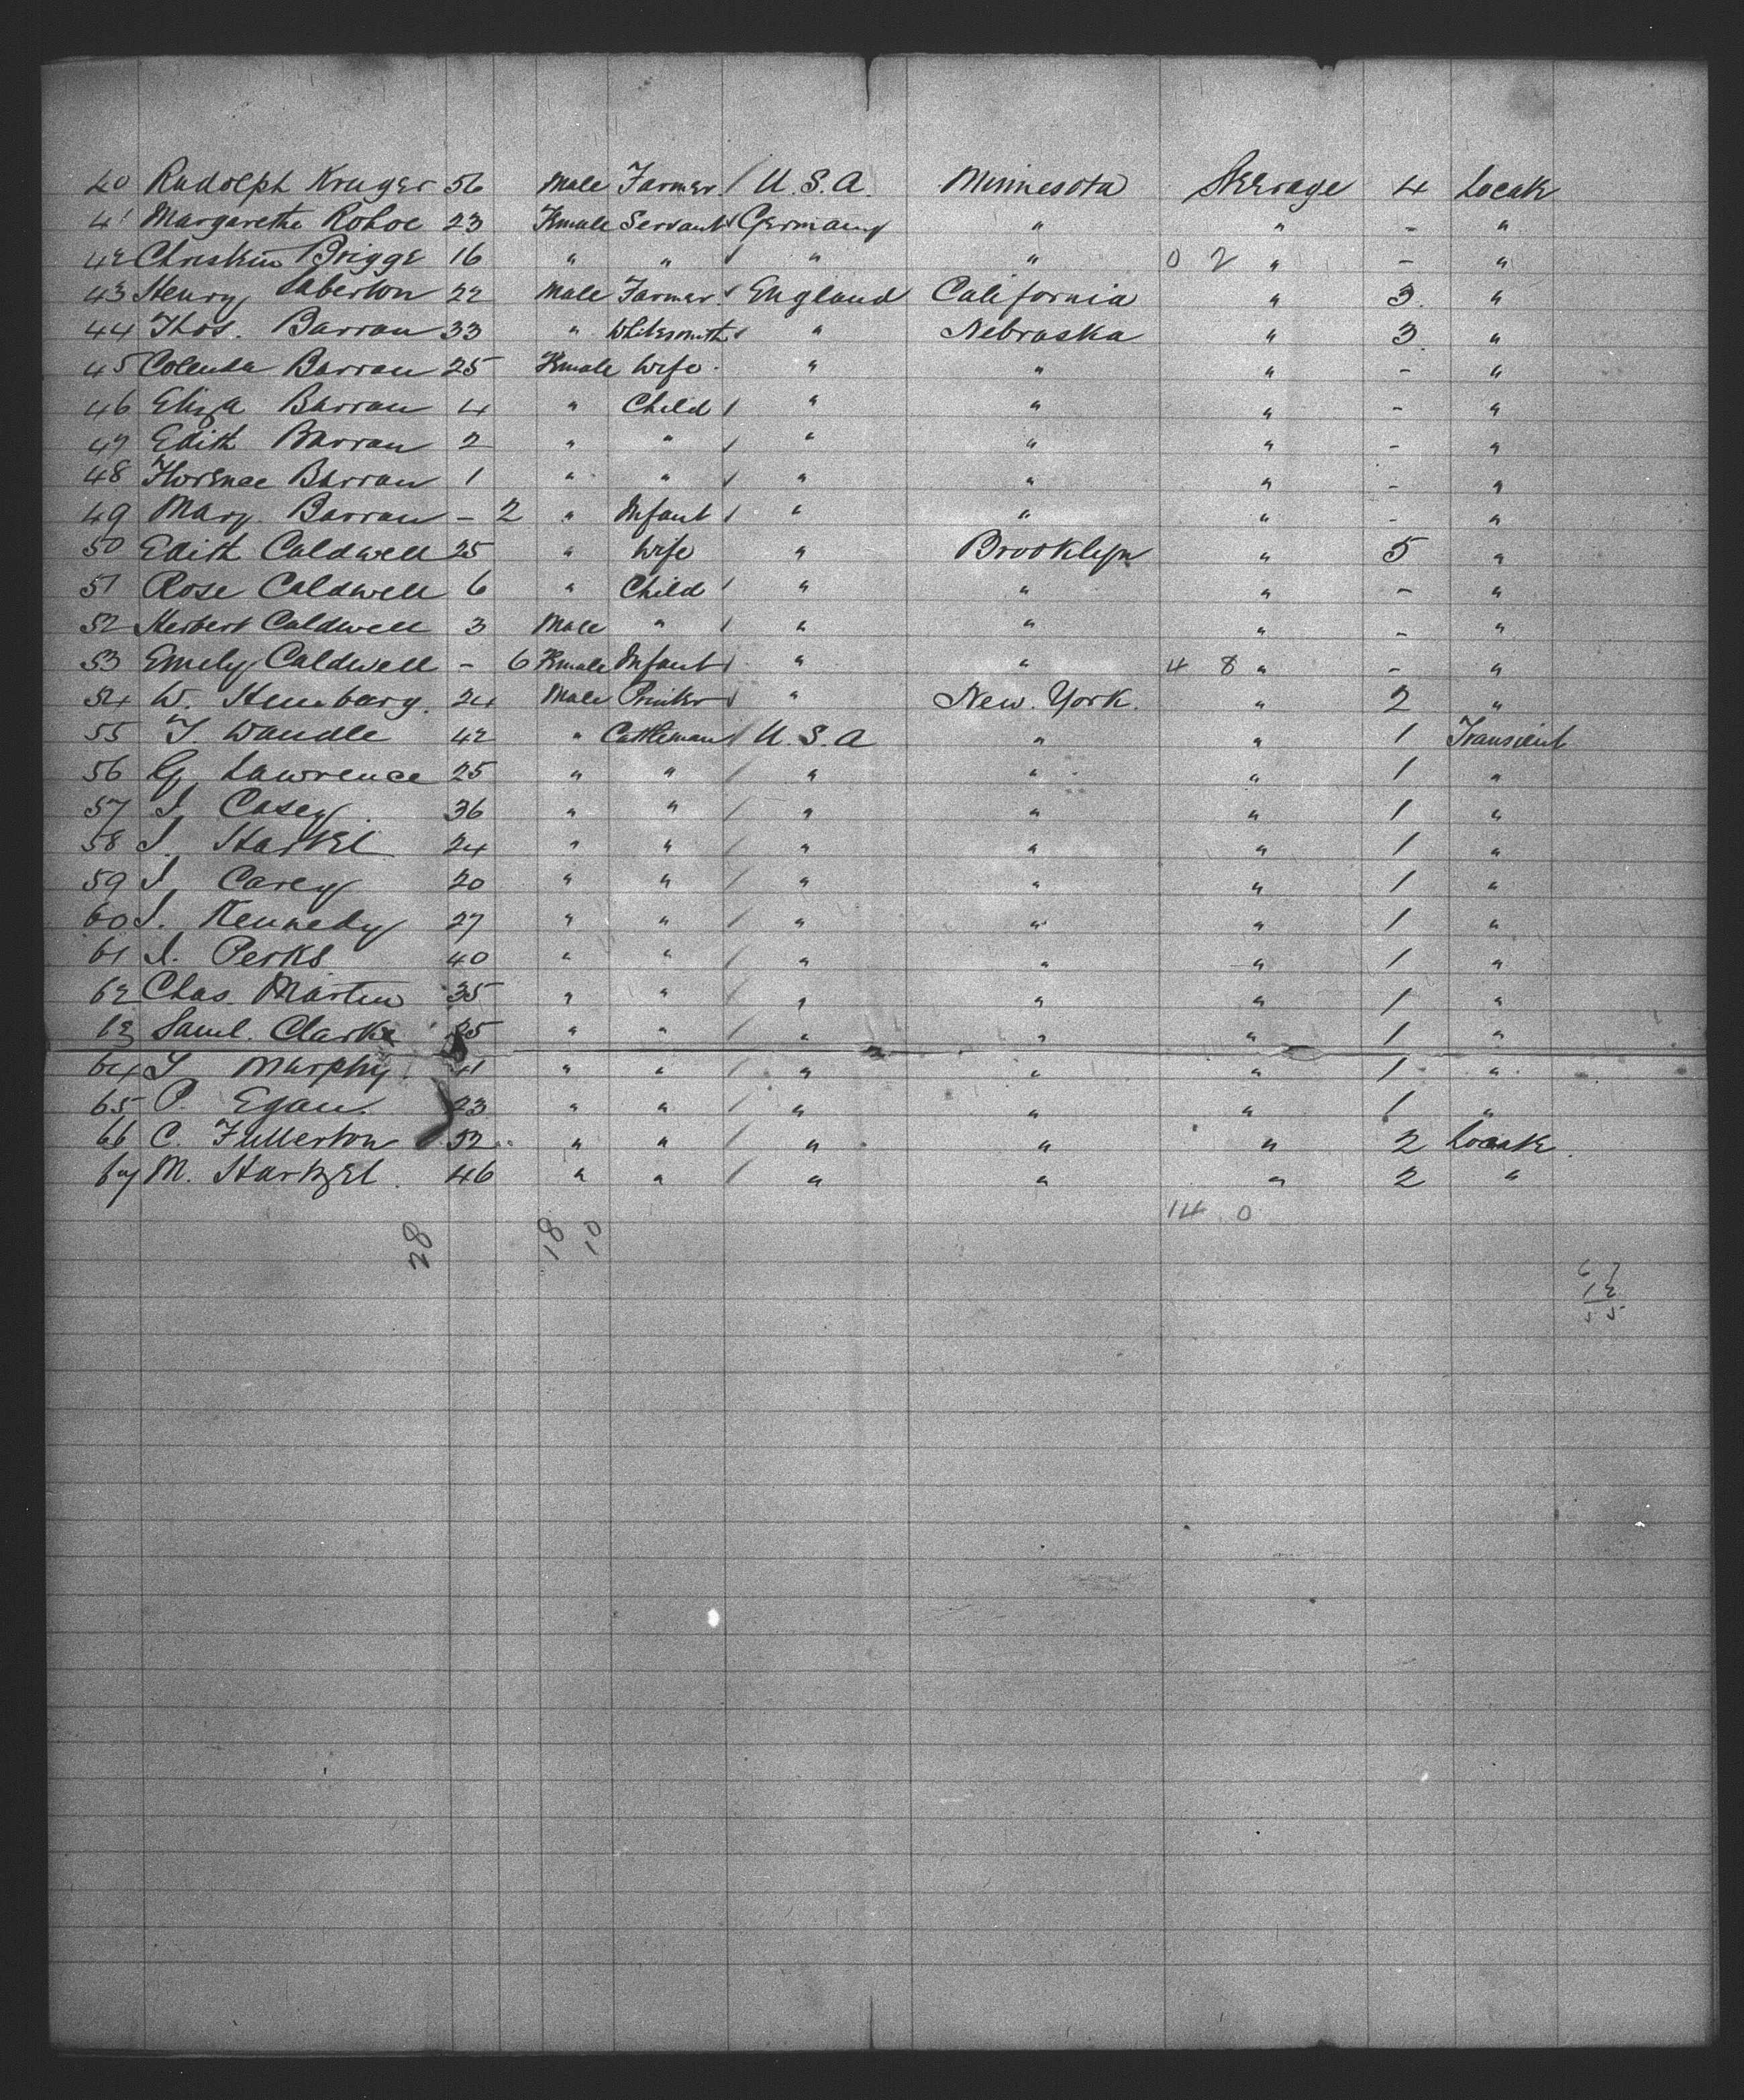 40 Rudolph Kruger 56 Male Farmer / U.S.A. Minnesota Steerage 4 Locate
41 Margarethe Rohoe 23 Female Servant Germany " " - "
42 Briggs 16 " " / " " 0 2 " - "
43 Henry Laberton 22 Male Farmer England California " 3. "
44 Thos. Barran 33 " Whitesmith " Nebraska " 3. "
45 Barran 25 Female Wife " " " - "
46 Eliza Barran 4 " Child / " " " - "
47 Edith Barran 2 " " / " " " - "
48 Florence Barran 1 " " / " " " - "
49 Mary Barran - 2 " Infant / " " " - "
50 Edith Caldwell 25 " Wife " Brooklyn " 5 "
51 Rose Caldwell 6 " Child / " " " - "
52 Herbert Caldwell 3 Male " / " " " - "
53 Emely Caldwell - 6 Female Infant / " " 4 8 " - "
54 W. 24 Male Printer " New. York. " 2 "
55 T Wandle 42 " Cattleman / U.S.A " " 1 Transient
56 G. Lawrence 25 " " / " " " 1 "
57 J. Casey 36 " " / " " " 1 "
58 J. Harkel 24 " " / " " " 1 "
59 J. Carey 20 " " / " " " 1 "
60 J. Kennedy 27 " " / " " " 1 "
61 J. Perks 40 " " / " " " 1 "
62 Chas. Martin 35 " " / " " " 1 "
63 Saml. Clarke 25 " " / " " " 1 "
64 Murphy 41 " " / " " " 1 "
65 P. Egan. 23 " " / " " " 1 "
66 C. Fullerton 52 " " / " " " 2 Locate.
67 M. Hartzel. 46 " " / " " " 2 "
14 0
28 18 10
67
12
55